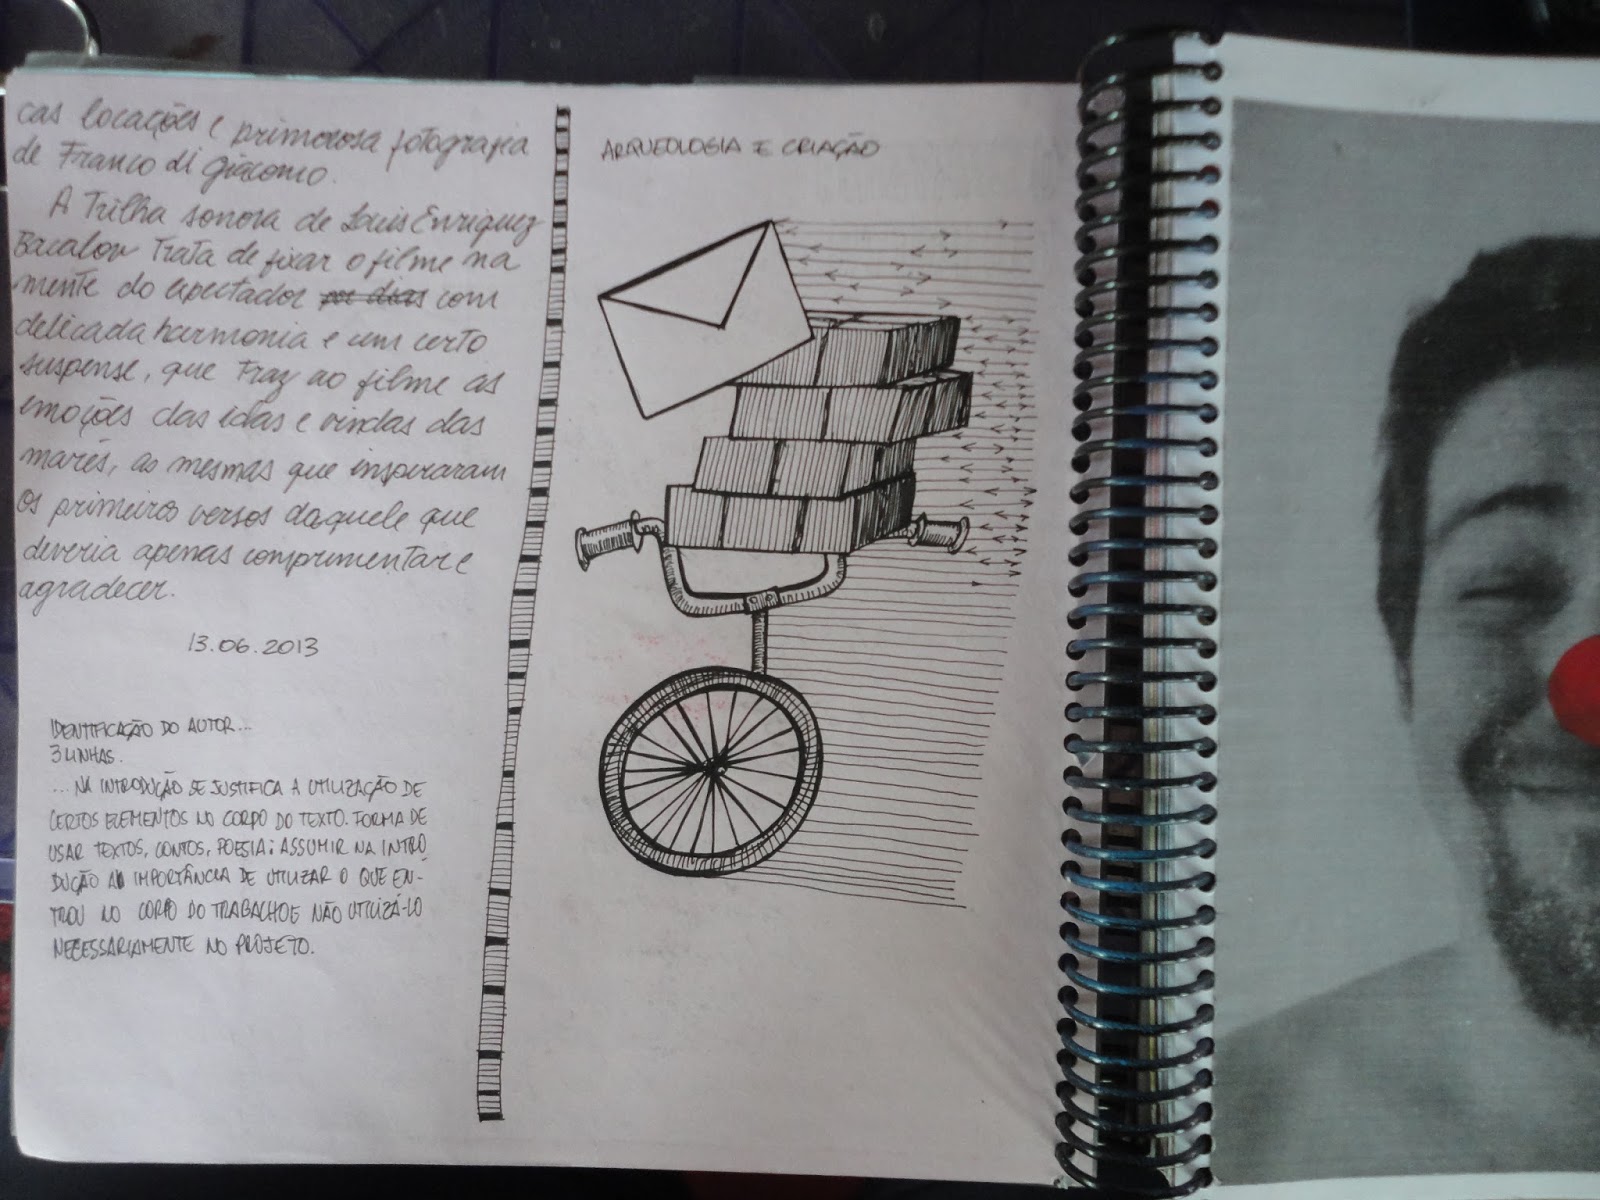 cas locações e primorosa fotografia
de Franco di Giacomo.
A Trilha sonora de Louis Enriquez
Bacalov Trata de fixar o filme na
mente do espectador por dias com
delicada harmonia e um certo
suspense, que Traz ao filme as
emoções das idas e vindas das
marés, as mesmas que inspiraram
os primeiros versos daquele que
deveria apenas comprimentar e
agradecer.
13.06.2013
IDENTIFICAÇÃO DO AUTOR...
3 LINHAS.
... NA INTRODUÇÃO SE JUSTIFICA A UTILIZAÇÃO DE
CERTOS ELEMENTOS NO CORPO DO TEXTO. FORMA DE
USAR TEXTOS, CONTOS, POESIA: ASSUMIR NA INTRO
DUÇÃO A IMPORTÂNCIA DE UTILIZAR O QUE EN-
TROU NO CORPO DO TRABALHO E NÃO UTILIZÁ-LO
NECESSARIAMENTE NO PROJETO.
ARQUEOLOGIA E CRIAÇÃO